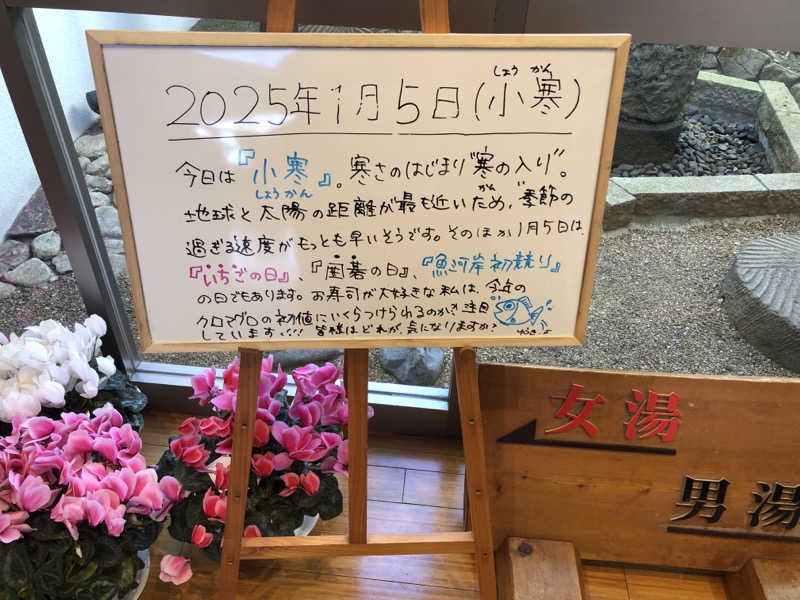 2025年1月5日(小寒)
しょう かん
今日は『小寒』。寒さのはじまり"寒の入り"。
しょうかん
かん
地球と太陽の距離が最も近いため、季節の
過ぎる速度がもっとも早いそうです。そのほか1月5日は、
『いちごの日』、『囲碁の日』、『魚河岸初競り』
の日でもあります。お寿司が大好きな私は、今年の
クロマグロの初値にいくらつけられるのか?注目
しています… 皆様はどれが、気になりますか?
女湯
男湯